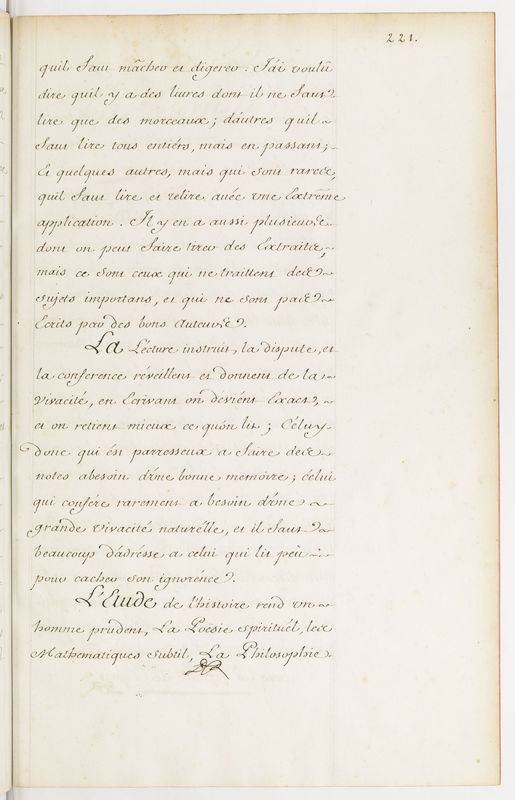 221.
quil faut mâcher et digerer. J'ái voulû
dire quil y a des livres dont il ne faut
lire que des morceaux; dáutres quil
faut lire tous entiérs, mais en passant;
Et quelques autres, mais qui sont rares,
quil faut lire et relire avéc vne Extrême
application. Il y en a aussi plusieurs
dont on peut faire tirer des Extraits,
mais ce sont ceux qui ne traittent des
sujets importans, et qui ne sont pas
Ecrits par des bons Auteurs.
La Lécture instruit, la dispute, et
la conference réveillent et donnent de la
vivacité, en Ecrivant on deviént Exact,
et on retient mieux ce quón lit; Céluy
donc qui ést parresseux a faire des
notes abesoin d'vne bonne memoire; célui
qui confére rarement a besoin d'vne
grande vivacité naturélle, et il faut
beaucoup d'adrésse a celui qui lit péu
pour cacher son ignorénce.
L'Etude de l'histoire rend vn
homme prudent, La Poësie spirituél, les
Mathematiques subtil, La Philosophie